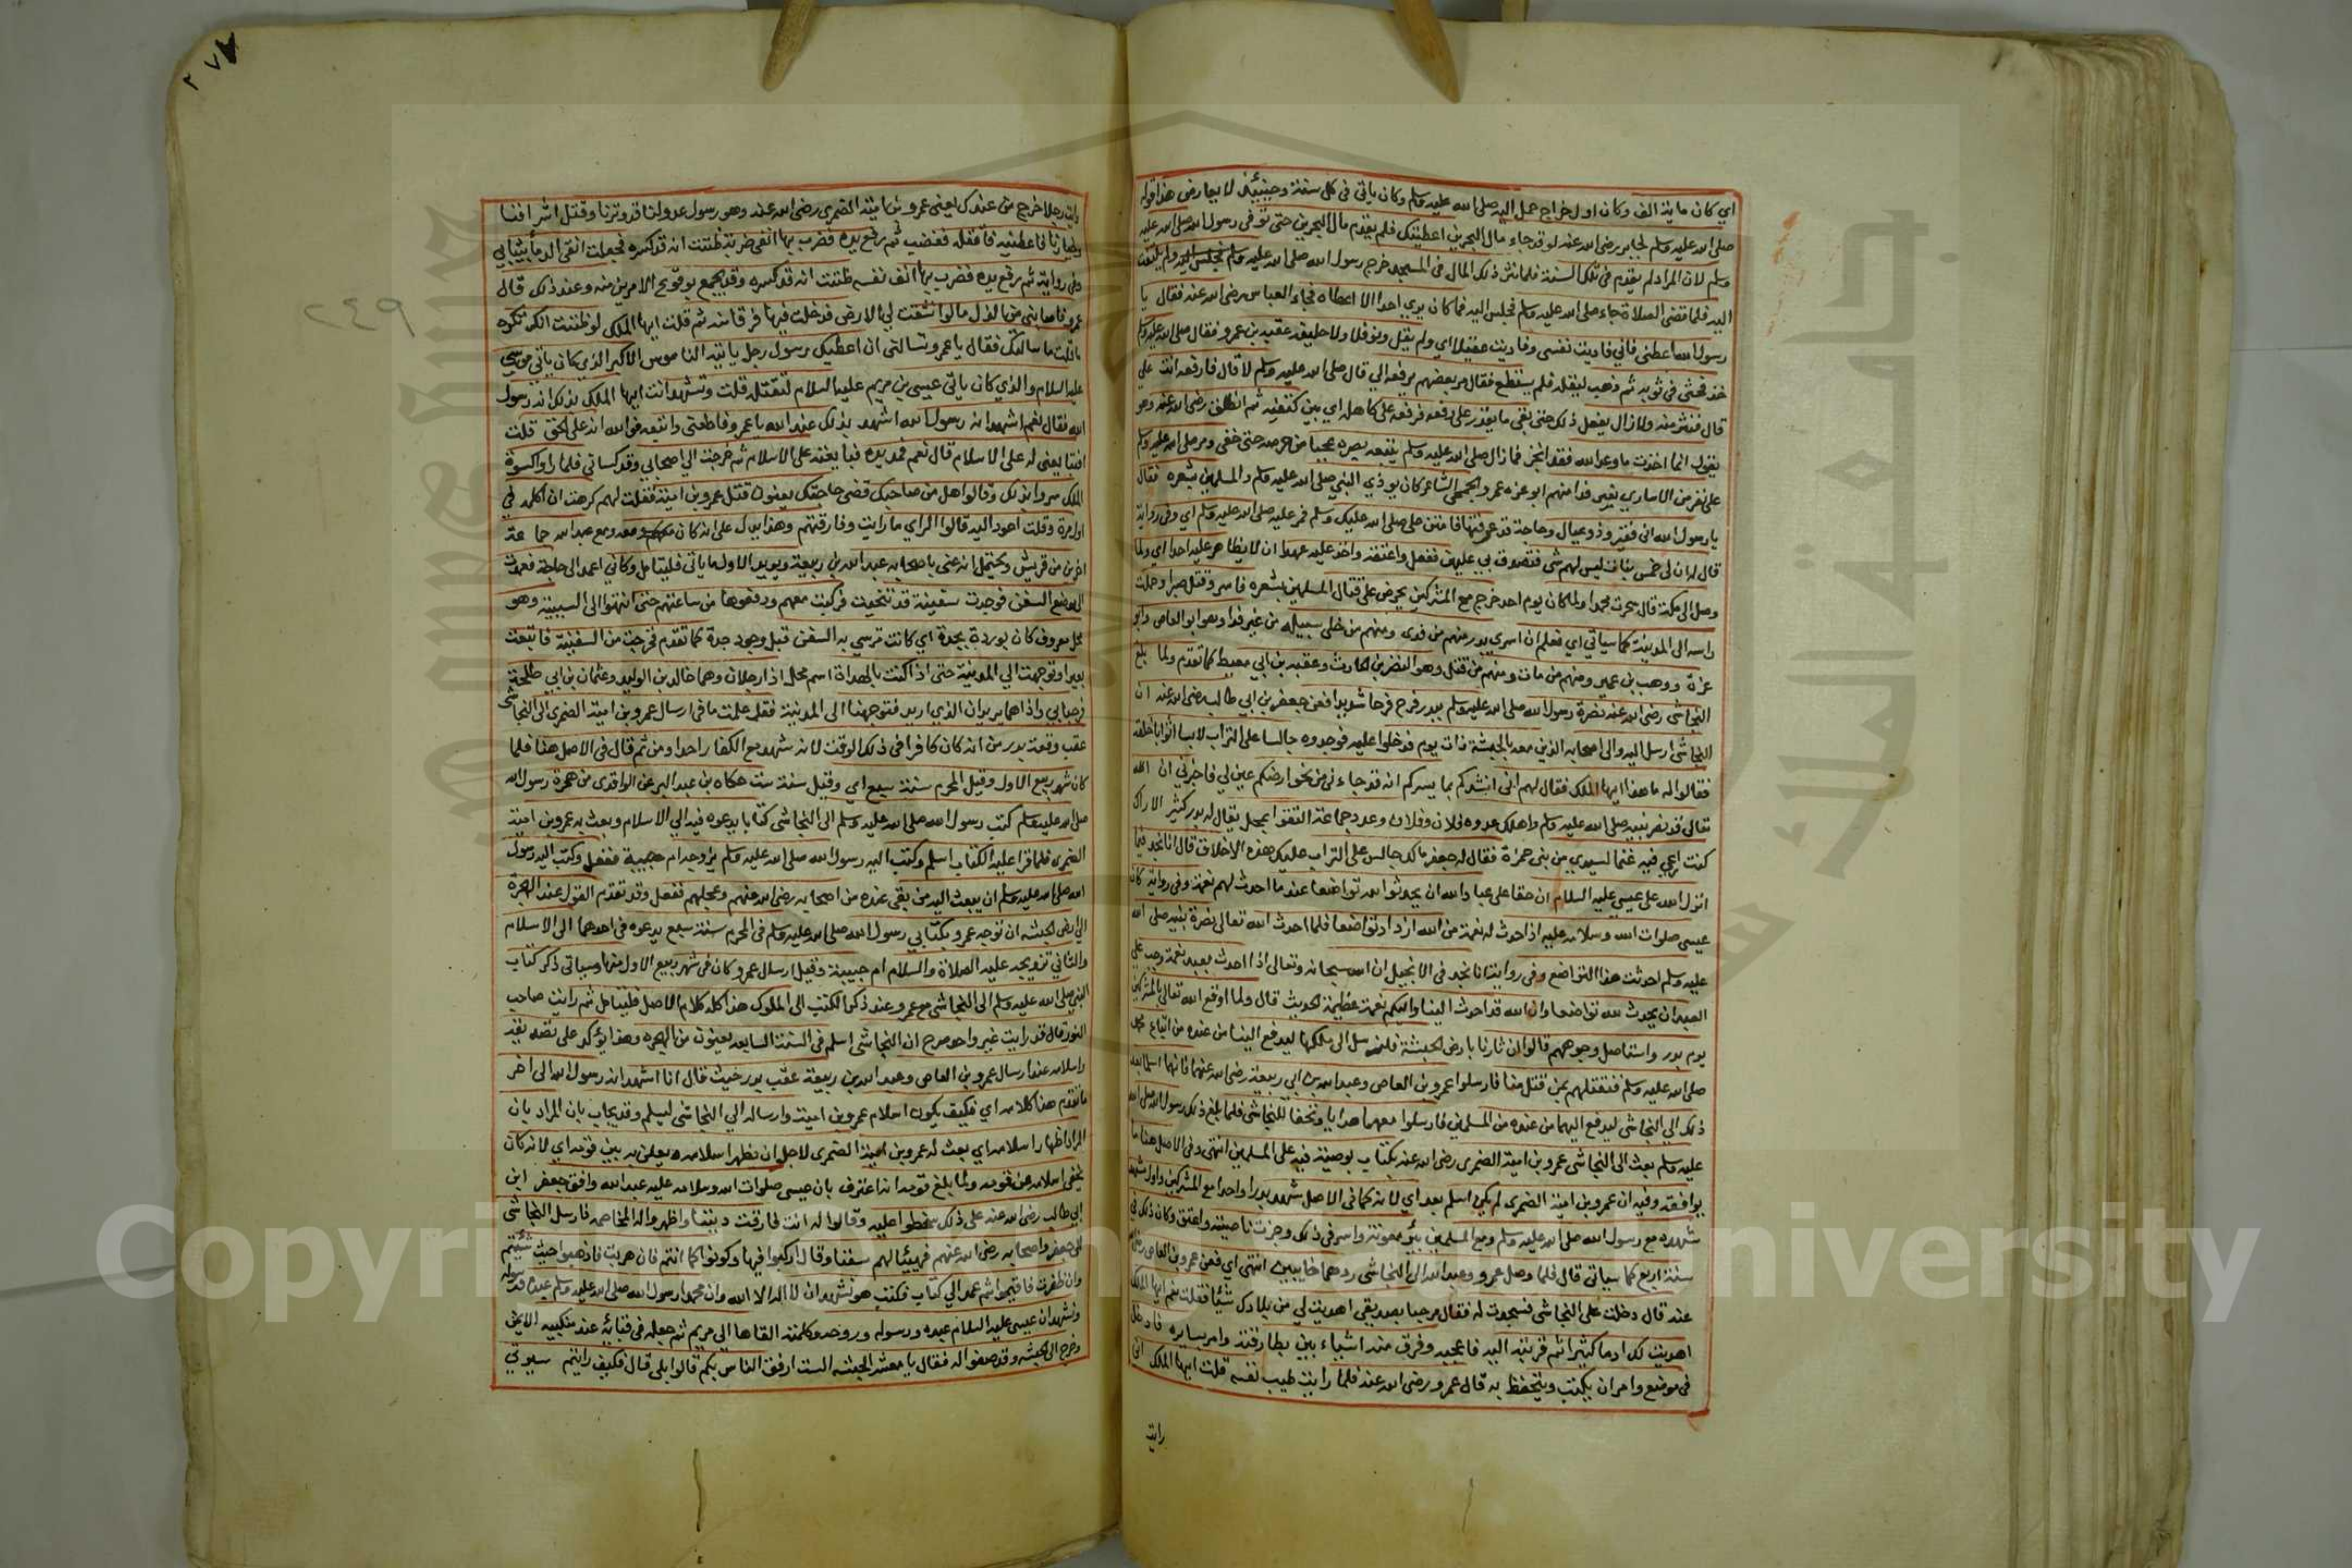 اي كان ماية الف وكان اول خراج حمل اليه صلى الله عليه وسلم وكان ياتى فى كل سنة وحينئذ لا يعارض هذا قوله
صلى الله عليه وسلم لجابر رضى الله عنه لو قد جاء مال البحرين اعطيتك فلم يقدم مال البحرين حتى توفى رسول الله صلى الله عليه
وسلم لان المراد لم يقدم فى تلك السنة فلما نثر ذلك المال فى المسجد خرج رسول الله صلى الله عليه وسلم ولم يلتفت
اليه فلما قضى الصلاة جاء صلى الله عليه وسلم فجلس اليه فما كان يرى احدا الا اعطاه فجاء العباس رضى الله عنه فقال يا
رسول الله اعطنى فاني فاديت نفسى وفاديت عقيلا اي ولم يقل ونوفلا ولا حليفه عقبة بن عمرو فقال صلى الله عليه وسلم
خذ فحثى فى ثوبه ثم ذهب ليقله فلم يستطع فقال مر بعضهم يرفعه الي قال صلى الله عليه وسلم لا قال فارفعه انت علي
قال فنثر منه ولا زال يفعل ذلك حتى بقى ما يقدر على رفعه فرفعه على كاهله اي بين كتفيه ثم انطلق رضى الله عنه وهو
يقول انما اخذت ما وعد الله فقد انجز فما زال صلى الله عليه وسلم يتبعه بصره عجبا من حرصه حتى خفى ومن صلى الله عليه وسلم
على نفر من الاسارى بغير فدا منهم ابو عزه عمرو الجمحى الشاعر كان يوذي النبي صلى الله عليه وسلم والمسلمين بشعره فقال
يا رسول الله انى فقير وذو عيال وحاجة قد عرفتها فامنن على صلى الله عليك وسلم فمن عليه صلى الله عليه وسلم اي وفى رواية
قال له ان لى خمس بنات ليس لهم شى فتصدق بي عليهن ففعل واعتقه واخذ عليه عهدا ان لا يظاهر عليه احدا اي ولما
وصل الى مكة قال سحرت محمدا ولما كان يوم احد خرج مع المشركين يحرض على قتال المسلمين بشعره فاسر وقتل صبرا وحملت
راسه الى المدينة كما سياتي اي فعلم ان اسرى بدر منهم من فدى ومنهم من خلى سبيله من غير فدا وهو ابو العاص وابو
عزة ووهب بن عمير ومنهم من مات ومنهم من قتل وهو النضر بن الحارث وعقبة بن ابي معيط كما تقدم ولما بلغ
النجاشى رضى الله عنه نصرة رسول الله صلى الله عليه وسلم ببدر فرح فرحا شديدا فعن جعفر بن ابي طالب رضى الله عنه ان
النجاشى ارسل اليه والى اصحابه الذين معه بالحبشة ذات يوم فدخلوا عليه فوجدوه جالسا على التراب لابسا اثوابا خلقة
فقالوا له ما هذا ايها الملك فقال لهم انى ابشركم بما يسركم انه قد جاءنى من نحو ارضكم عين لي فاخبرني ان الله
تعالى قد نصر نبيه صلى الله عليه وسلم واهلك عدوه فلان وفلان وعدد جماعة التقوا بمحل يقال له بدر كثير الاراك
كنت ارعي فيه غنما لسيدي من بنى ضمرة فقال له جعفر ما لك جالس على التراب عليك هذه الاخلاق قال انا نجد فيما
انزل الله على عيسى عليه السلام ان حقا على عباد الله ان يحدثوا لله تواضعا عند ما احدث لهم نعمة وفى رواية كان
عيسى صلوات الله وسلامه عليه اذا حدث له نعمة من الله ازداد تواضعا فلما احدث الله تعالى نصرة نبيه صلى الله
عليه وسلم احدثت هذا التواضع وفى رواية انا نجد فى الانجيل ان الله سبحانه وتعالى اذا احدث بعبده نعمة وجب على
العبد ان يحدث لله تواضعا وان الله قد احدث الينا واليكم نعمة عظيمة الحديث قال ولما اوقع الله تعالى بالمشركين
يوم بدر واستاصل وجوههم قالوا ان ثارنا بارض الحبشة فلنرسل الى ملكها ليدفع الينا من عنده من اتباع محمد
صلى الله عليه وسلم فنقتلهم بمن قتل منا فارسلوا عمرو بن العاص وعبد الله بن ابي ربيعة رضى الله عنهما فانهما اسلما بعد
ذلك الي النجاشى ليدفع اليهما من عنده من المسلمين فارسلوا معهما هدايا وتحفا للنجاشى فلما بلغ ذلك رسول الله صلى الله
عليه وسلم بعث الى النجاشى عمرو بن امية الضمرى رضى الله عنه بكتاب يوصيه فيه على المسلمين انتهى وفى الاصل هنا ما
يوافقه وفيه ان عمرو بن امية الضمرى لم يكن اسلم بعد اي لانه كما فى الاصل شهد بدرا واحدا مع المشركين واول مشهد
شهده مع رسول الله صلى الله عليه وسلم ومع المسلمين بئر معونة واسر فى ذلك وجزت ناصيته واعتق وكان ذلك في
سنة اربع كما سياتى قال فلما وصل عمرو وعبد الله الى النجاشى ردهما خايبين انتهى اي فعن عمرو بن العاص رضى الله
عنه قال دخلت على النجاشى فسجدت له فقال مرحبا بصديقى اهديت لي من بلادك شيئا فقلت نعم ايها الملك
اهديت لك ادما كثيرا ثم قربته اليه فاعجبه وفرق منه اشياء بين بطارقته وامر بسايره فادخل
فى موضع وامر ان يكتب ويتحفظ به قال عمرو رضى الله عنه فلما رايت طيب نفسه قلت ايها الملك انى
رايت
رايت رجلا خرج من عندك يعنى عمرو بن امية الضمرى رضى الله عنه وهو رسول عدو لنا قد وترنا وقتل اشرافنا
وخيارنا فاعطنيه فاقتله فغضب ثم رفع يده فضرب بها انفى ضربة ظننت انه قد كسره فجعلت اتقى الدم بثيابي
وفى رواية ثم رفع يده فضرب بها انف نفسه ظننت انه قد كسره وقد يجمع بوقوع الامرين منه وعند ذلك قال
عمرو فاصابنى من الذل ما لو انشقت لي الارض فدخلت فيها فرقا منه ثم قلت ايها الملك لو ظننت انك تكره
ما قلت ما سالتك فقال يا عمرو تسالنى ان اعطيك رسول رجل ياتيه الناموس الاكبر الذي كان ياتي موسى
عليه السلام والذي كان ياتى عيسى بن مريم عليه السلام لتقتله قلت وتشهد انت ايها الملك بذلك انه رسول
الله فقال نعم اشهد انه رسول الله اشهد بذلك عند الله يا عمرو فاطعنى واتبعه فوالله انه على الحق قلت
افتبايعنى له على الاسلام قال نعم فمد يده فبايعته على الاسلام ثم خرجت الي اصحابي وقد كسانى فلما راوا كسوة
الملك سروا بذلك وقالوا هل من صاحبك قضى حاجتك يعنون قتل عمرو بن امية فقلت لهم كرهت ان اكلمه في
اول مرة وقلت اعود اليه قالوا الراي ما رايت وفارقتهم وهذا يدل على انه كان معه ومع عبد الله جماعة
اخرين من قريش ويحتمل انه عنى باصحابه عبد الله بن ربيعة ويويد الاول ما ياتى فليتامل وكانى اعمد الى حاجة فعمدت
الى موضع السفن فوجدت سفينة قد شحنت فركبت معهم ودفعوها من ساعتهم حتى انتهوا الى الشعيبة وهو
محل معروف كان موردة بجدة اي كانت ترسي به السفن قبل وجود جدة كما تقدم فخرجت من السفينة فابتعت
بعيرا وتوجهت الي المدينة حتى اذا كنت بالهداة اسم محل اذا رجلان وهما خالد بن الوليد وعثمان بن ابي طلحة
فرحبا بي واذا هما يريدان الذي اريد فتوجهنا الى المدينة فقد علمت ما فى ارسال عمرو بن امية الضمرى الى النجاشى
عقب وقعة بدر من انه كان كافرا فى ذلك الوقت لانه شهد مع الكفار احدا ومن ثم قال فى الاصل هنا فلما
كان شهر ربيع الاول وقيل المحرم سنة سبع اي وقيل سنة ست حكاه بن عبد البر عن الواقدى من هجرة رسول الله
صلى الله عليه وسلم كتب رسول الله صلى الله عليه وسلم الى النجاشى كتابا يدعوه فيه الي الاسلام وبعث به عمرو بن امية
الضمرى فلما قرا عليه الكتاب اسلم وكتب اليه رسول الله صلى الله عليه وسلم يزوجه ام حبيبة ففعل وكتب اليه رسول
الله صلى الله عليه وسلم ان يبعث اليه من بقى عنده من اصحابه رضى الله عنهم ويحملهم ففعل وقد تقدم القول عند الهجرة
الي ارض الحبشه ان توجه عمرو بكتابي رسول الله صلى الله عليه وسلم فى المحرم سنة سبع يدعوه فى احدهما الى الاسلام
والثاني تزويجه عليه الصلاة والسلام ام حبيبة وقيل ارسال عمرو كان فى شهر ربيع الاول منها وسياتى ذكر كتاب
النبي صلى الله عليه وسلم الى النجاشى مع عمرو عند ذكر الكتب الى الملوك هذا كله كلام الاصل فليتامل ثم رايت صاحب
النور قال قد رايت غير واحد صرح ان النجاشى اسلم فى السنة السابعه يعنون من الهجره وهذا يؤكد على تصديقه
واسلامه عند ارسال عمرو بن العاص وعبد الله بن ربيعة عقب بدر حيث قال انا اشهد انه رسول الله الى اخر
ما تقدم هذا كلامه اي فكيف يكون اسلام عمرو بن امية وارساله الي النجاشى ليسلم وقد يجاب بان المراد بان
المراد اظهار اسلامه اي بعث له عمرو بن امية الضمرى لاجل ان يظهر اسلامه ويعلن به بين قومه اي لانه كان
يخفى اسلامه عن قومه ولما بلغ قومه انه اعترف بان عيسى صلوات الله وسلامه عليه عبد الله وافق جعفر ابن
ابى طالب رضى الله عنه على ذلك سخطوا عليه وقالوا له انت فارقت ديننا واظهروا له المخاصمه فارسل النجاشى
الى جعفر واصحابه رضى الله عنهم فهييئا لهم سفنا وقال اركبوا فيها وكونوا كما انتم فان هربت فاذهبوا حيث شئتم
وان ظفرت فاقيموا ثم عمد الي كتاب فكتب هو نشهد ان لا اله الا الله وان محمدا رسول الله صلى الله عليه وسلم عبده ورسوله
ونشهد ان عيسى عليه السلام عبده ورسوله وروحه وكلمته القاها الي مريم ثم جعله فى قبائه عند منكبيه الايمن
وخرج الى الحبشه وقد صفوا له فقال يا معشر الحبشه الست ارفق الناس بكم قالوا بلى قال فكيف رايتم سيرتي